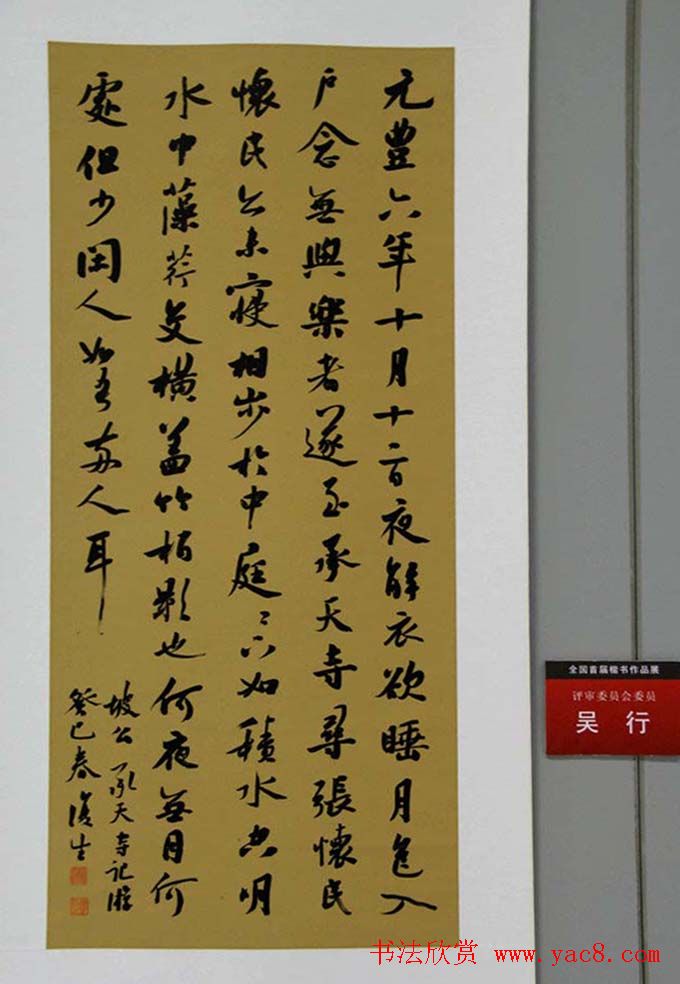 元豐六年十月十二日夜解衣欲睡月色入
户念無與樂者遂至承天寺尋張懷民
懷民亦未寢相步於中庭〻下如積水空明
水中藻荇交橫蓋竹柏影也何夜無月何
處但少閑人如吾兩人耳
坡公承天寺記遊
癸巳春
全国首届楷书作品展
评审委员会委员
吴行
书法欣赏 www.yac8.com